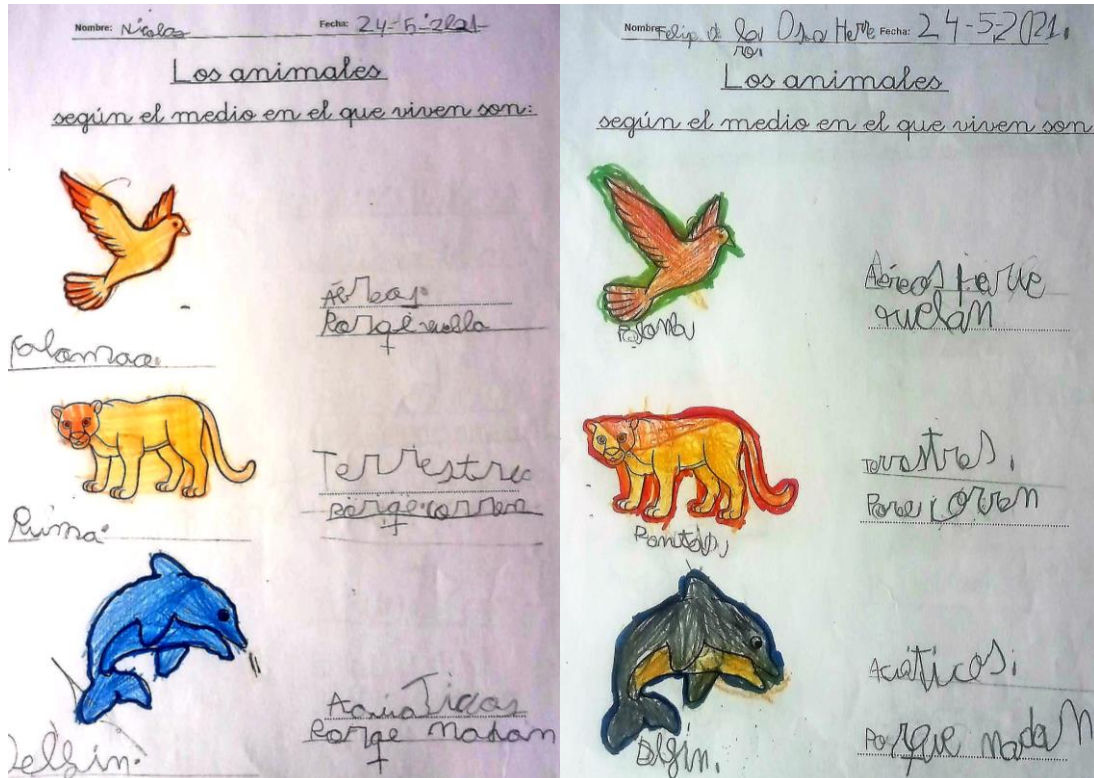 Nombre: Nicolas Fecha: 24-5-2021
Los animales
según el medio en el que viven son:
Aéreas
Porqe vuella
Palomaa.
Terrestre
porqe corren
Puma.
Acuaticos
Porqe nadan
Delfin.
Nombre: Felip de la Osa Herre Fecha: 24-5-2021.
ro.
Los animales
según el medio en el que viven son
Aéreos porue
vuelan
Paloma
Terrstres.
Porue corren
Acuáticos.
Porque nadan
Delfin.